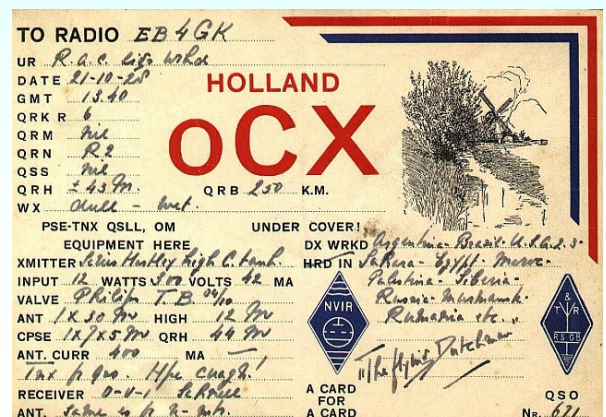 TO RADIO EB4GK
UR R.a.c. sigs wkd
DATE 21-10-28
GMT 13.40
QRK R 6
QRM nil
QRN R2
QSS nil
QRH ± 43 m.
WX dull - wet.
HOLLAND
OCX
QRB 250 K.M.
PSE-TNX QSLL, OM
UNDER COVER!
EQUIPMENT HERE
XMITTER Series Hartley high C. tank.
INPUT 12 WATTS 300 VOLTS 42 MA
VALVE Philips T.B 04/10
ANT 1 X 30 m HIGH 12 m
CPSE 1X7X5 m QRH 44 m
ANT. CURR 400 MA —
Tnx p qso. Hpe cuagn!
RECEIVER O-V-1 Schnell
ANT. Same as p x-mtr.
DX WRKD Argentina - Brazil - U.S.A. 2.3-
HRD IN Sahara - Egypt - Maroc -
Palestina - Siberia -
Russia - Murmansk -
Rumania etc.
"The flying Dutchman"
NVIR
T & R
RSGB
A CARD
FOR
A CARD
QSO
NR. 671